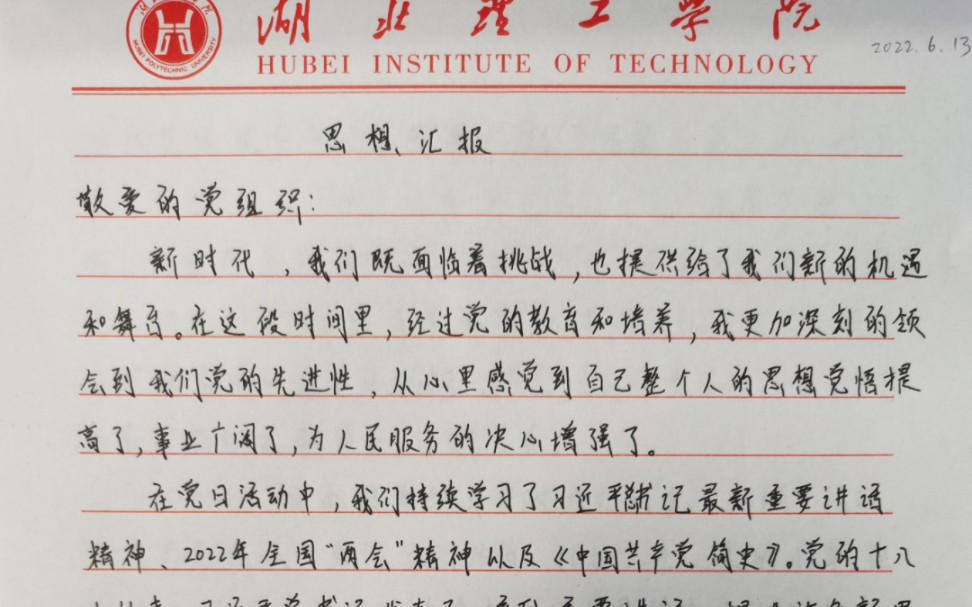 湖北理工学院
HUBEI POLYTECHNIC UNIVERSITY
HUBEI INSTITUTE OF TECHNOLOGY
2022.6.13
思想汇报
敬爱的党组织:
新时代,我们既面临着挑战,也提供给了我们新的机遇
和舞台。在这段时间里,经过党的教育和培养,我更加深刻的领
会到我们党的先进性,从心里感觉到自己整个人的思想觉悟提
高了,事业广阔了,为人民服务的决心增强了。
在党日活动中,我们持续学习了习近平总书记最新重要讲话
精神、2022年全国“两会”精神以及《中国共产党简史》。党的十八